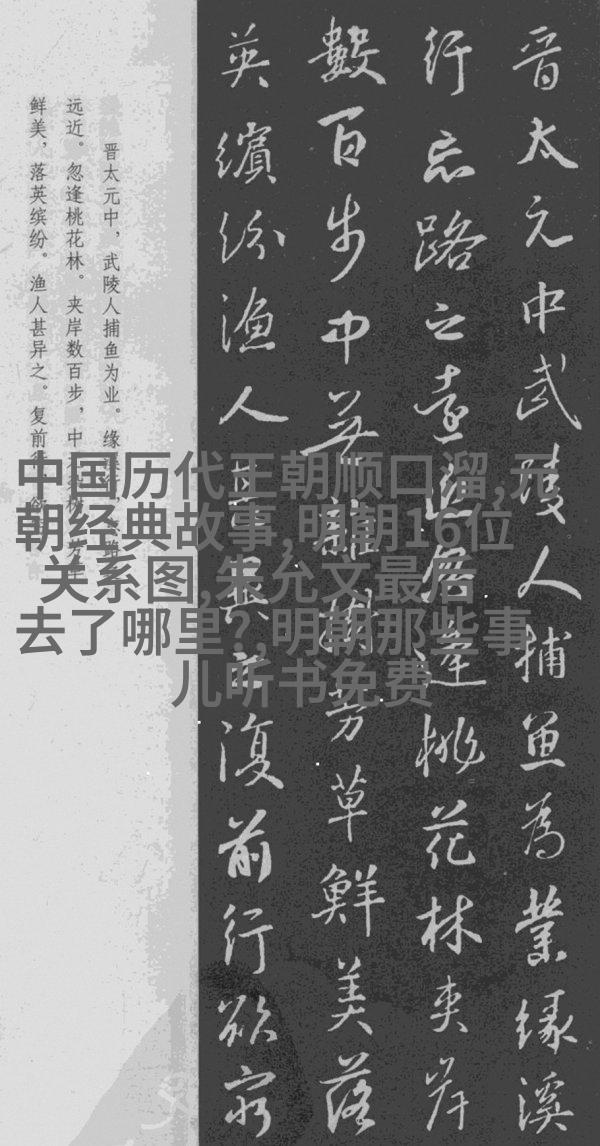 晉太元中武陵人捕魚為業緣溪
行忘路之遠近忽逢桃花林夾岸
數百步中無雜樹芳草鮮美落
英繽紛漁人甚異之復前行欲窮
晋太元中，武陵人捕鱼为业。缘
远近。忽逢桃花林。夹岸数百步，中
鲜美，落英缤纷。渔人甚异之。复前
中国历代王朝顺口溜,元
朝经典故事,明朝16位
关系图,朱允文最后
去了哪里?,明朝那些事
儿听书免费